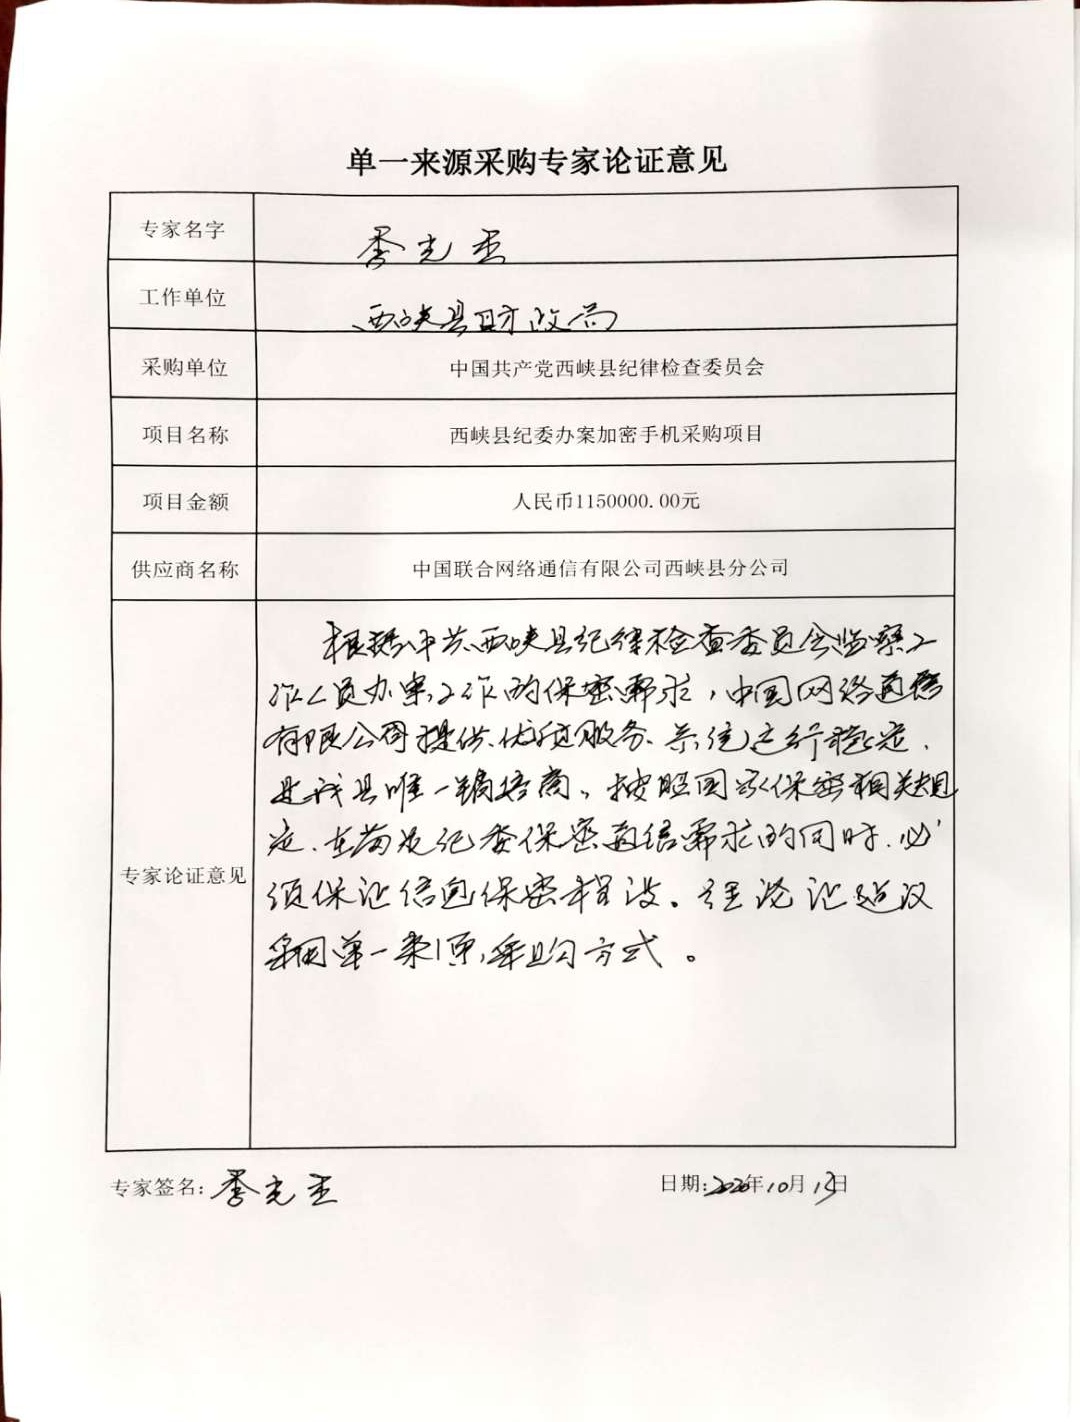 单一来源采购专家论证意见
专家名字
工作单位 西峡县财政局
采购单位 中国共产党西峡县纪律检查委员会
项目名称 西峡县纪委办案加密手机采购项目
项目金额 人民币1150000.00元
供应商名称 中国联合网络通信有限公司西峡县分公司
专家论证意见
根据中共西峡县纪律检查委员会监察工
作人员办案工作的保密需求，中国网络通信
有限公司提供优质服务、系统运行稳定，
是我县唯一销售商。按照国家保密相关规
定、在满足纪委保密通信需求的同时、必
须保证信息保密程度。经论证建议
采用单一来源采购方式。
专家签名：
日期：2020年10月13日